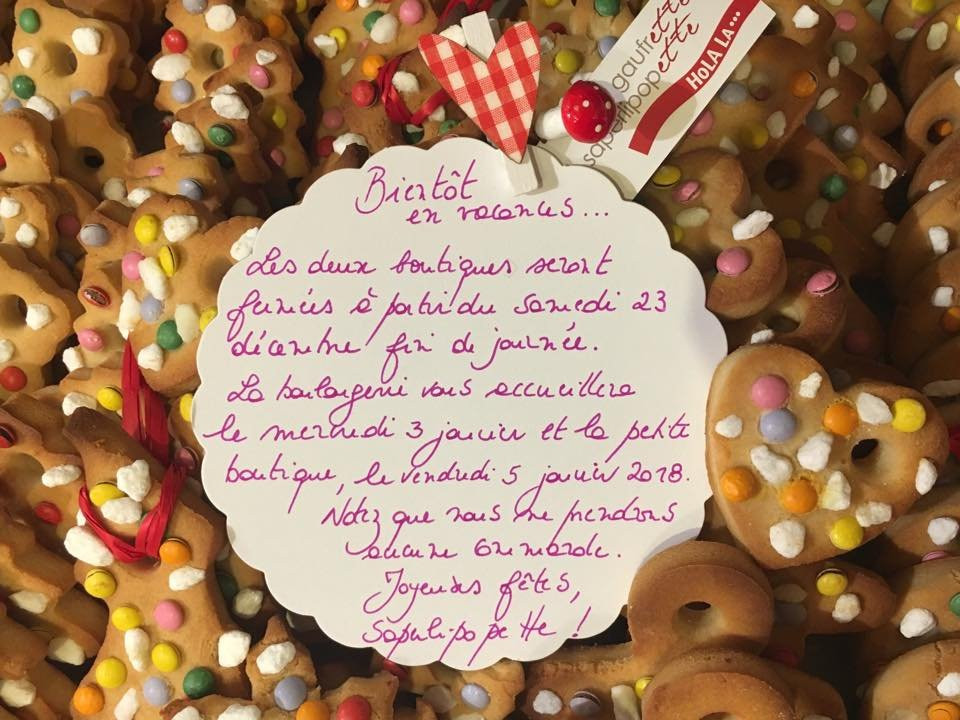 gaufrette
saperlipopette
HOLA LA...
Bientôt
en vacances...
Les deux boutiques seront
fermées à partir du samedi 23
décembre fin de journée.
La boulangerie vous accueillera
le mercredi 3 janvier et la petite
boutique, le vendredi 5 janvier 2018.
Notez que nous ne prendrons
aucune commande.
Joyeuses fêtes,
Saperlipopette !